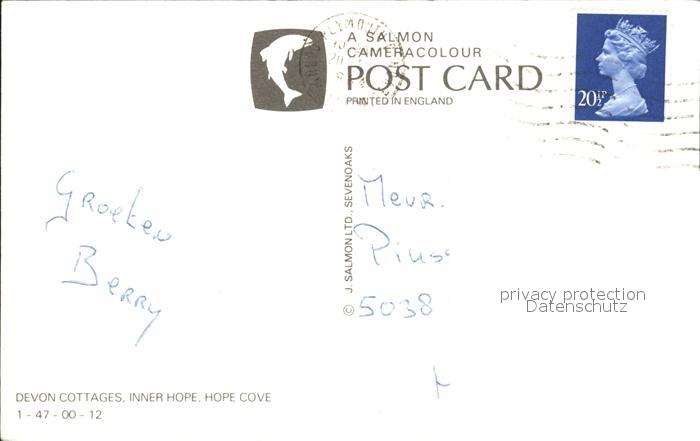 A SALMON
CAMERACOLOUR
POST CARD
PRINTED IN ENGLAND
PLYMOUTH
20½P
Groeten
Berry
© J. SALMON LTD., SEVENOAKS
Mevr.
Pius
5038
privacy protection
Datenschutz
DEVON COTTAGES, INNER HOPE, HOPE COVE
1 - 47 - 00 - 12